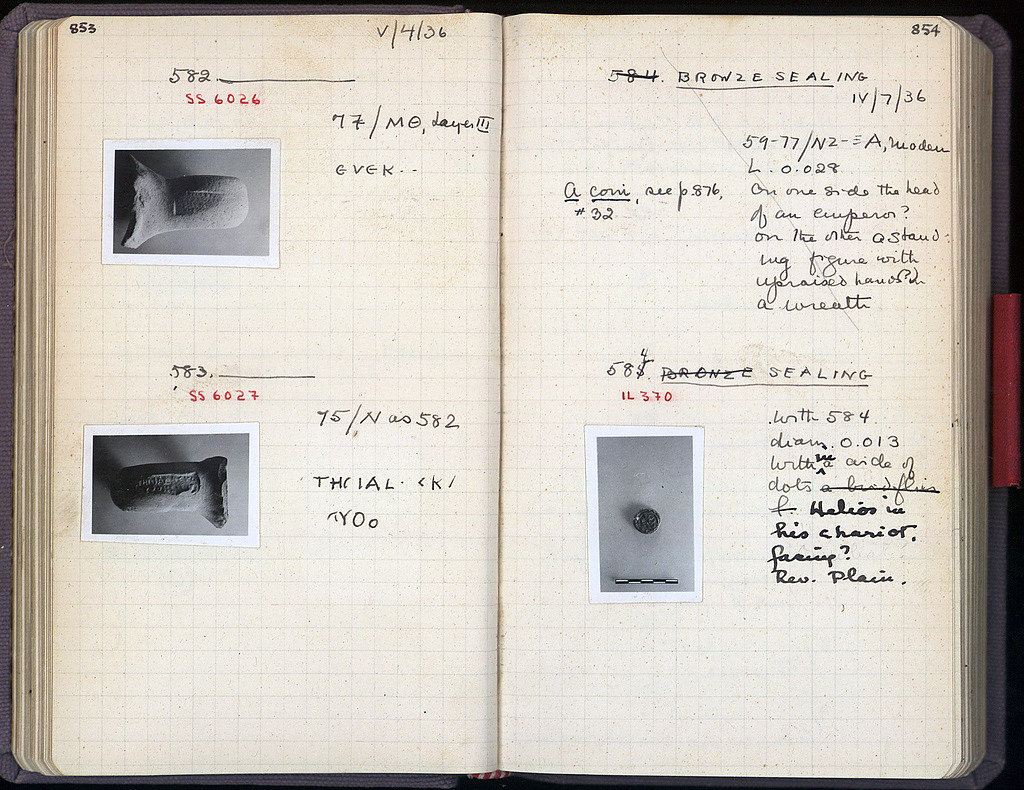 853
V/4/36
582.
SS 6026
77/ΜΘ, Layer III
EVEK··
583.
SS 6027
75/N as 582
THCIAL· <K/
ΠYOo
854
584. BRONZE SEALING
IV/7/36
59-77/NZ-ΞA, Modern
L. 0.028
A coin, see p. 876,
#32
On one side the head
of an emperor?
on the other a stand-
ing figure with
upraised hands? in
a wreath
584. BRONZE SEALING
IL 370
with 584
diam. 0.013
Within a circle of
dots
Helios in
his chariot,
facing?
Rev. Plain.